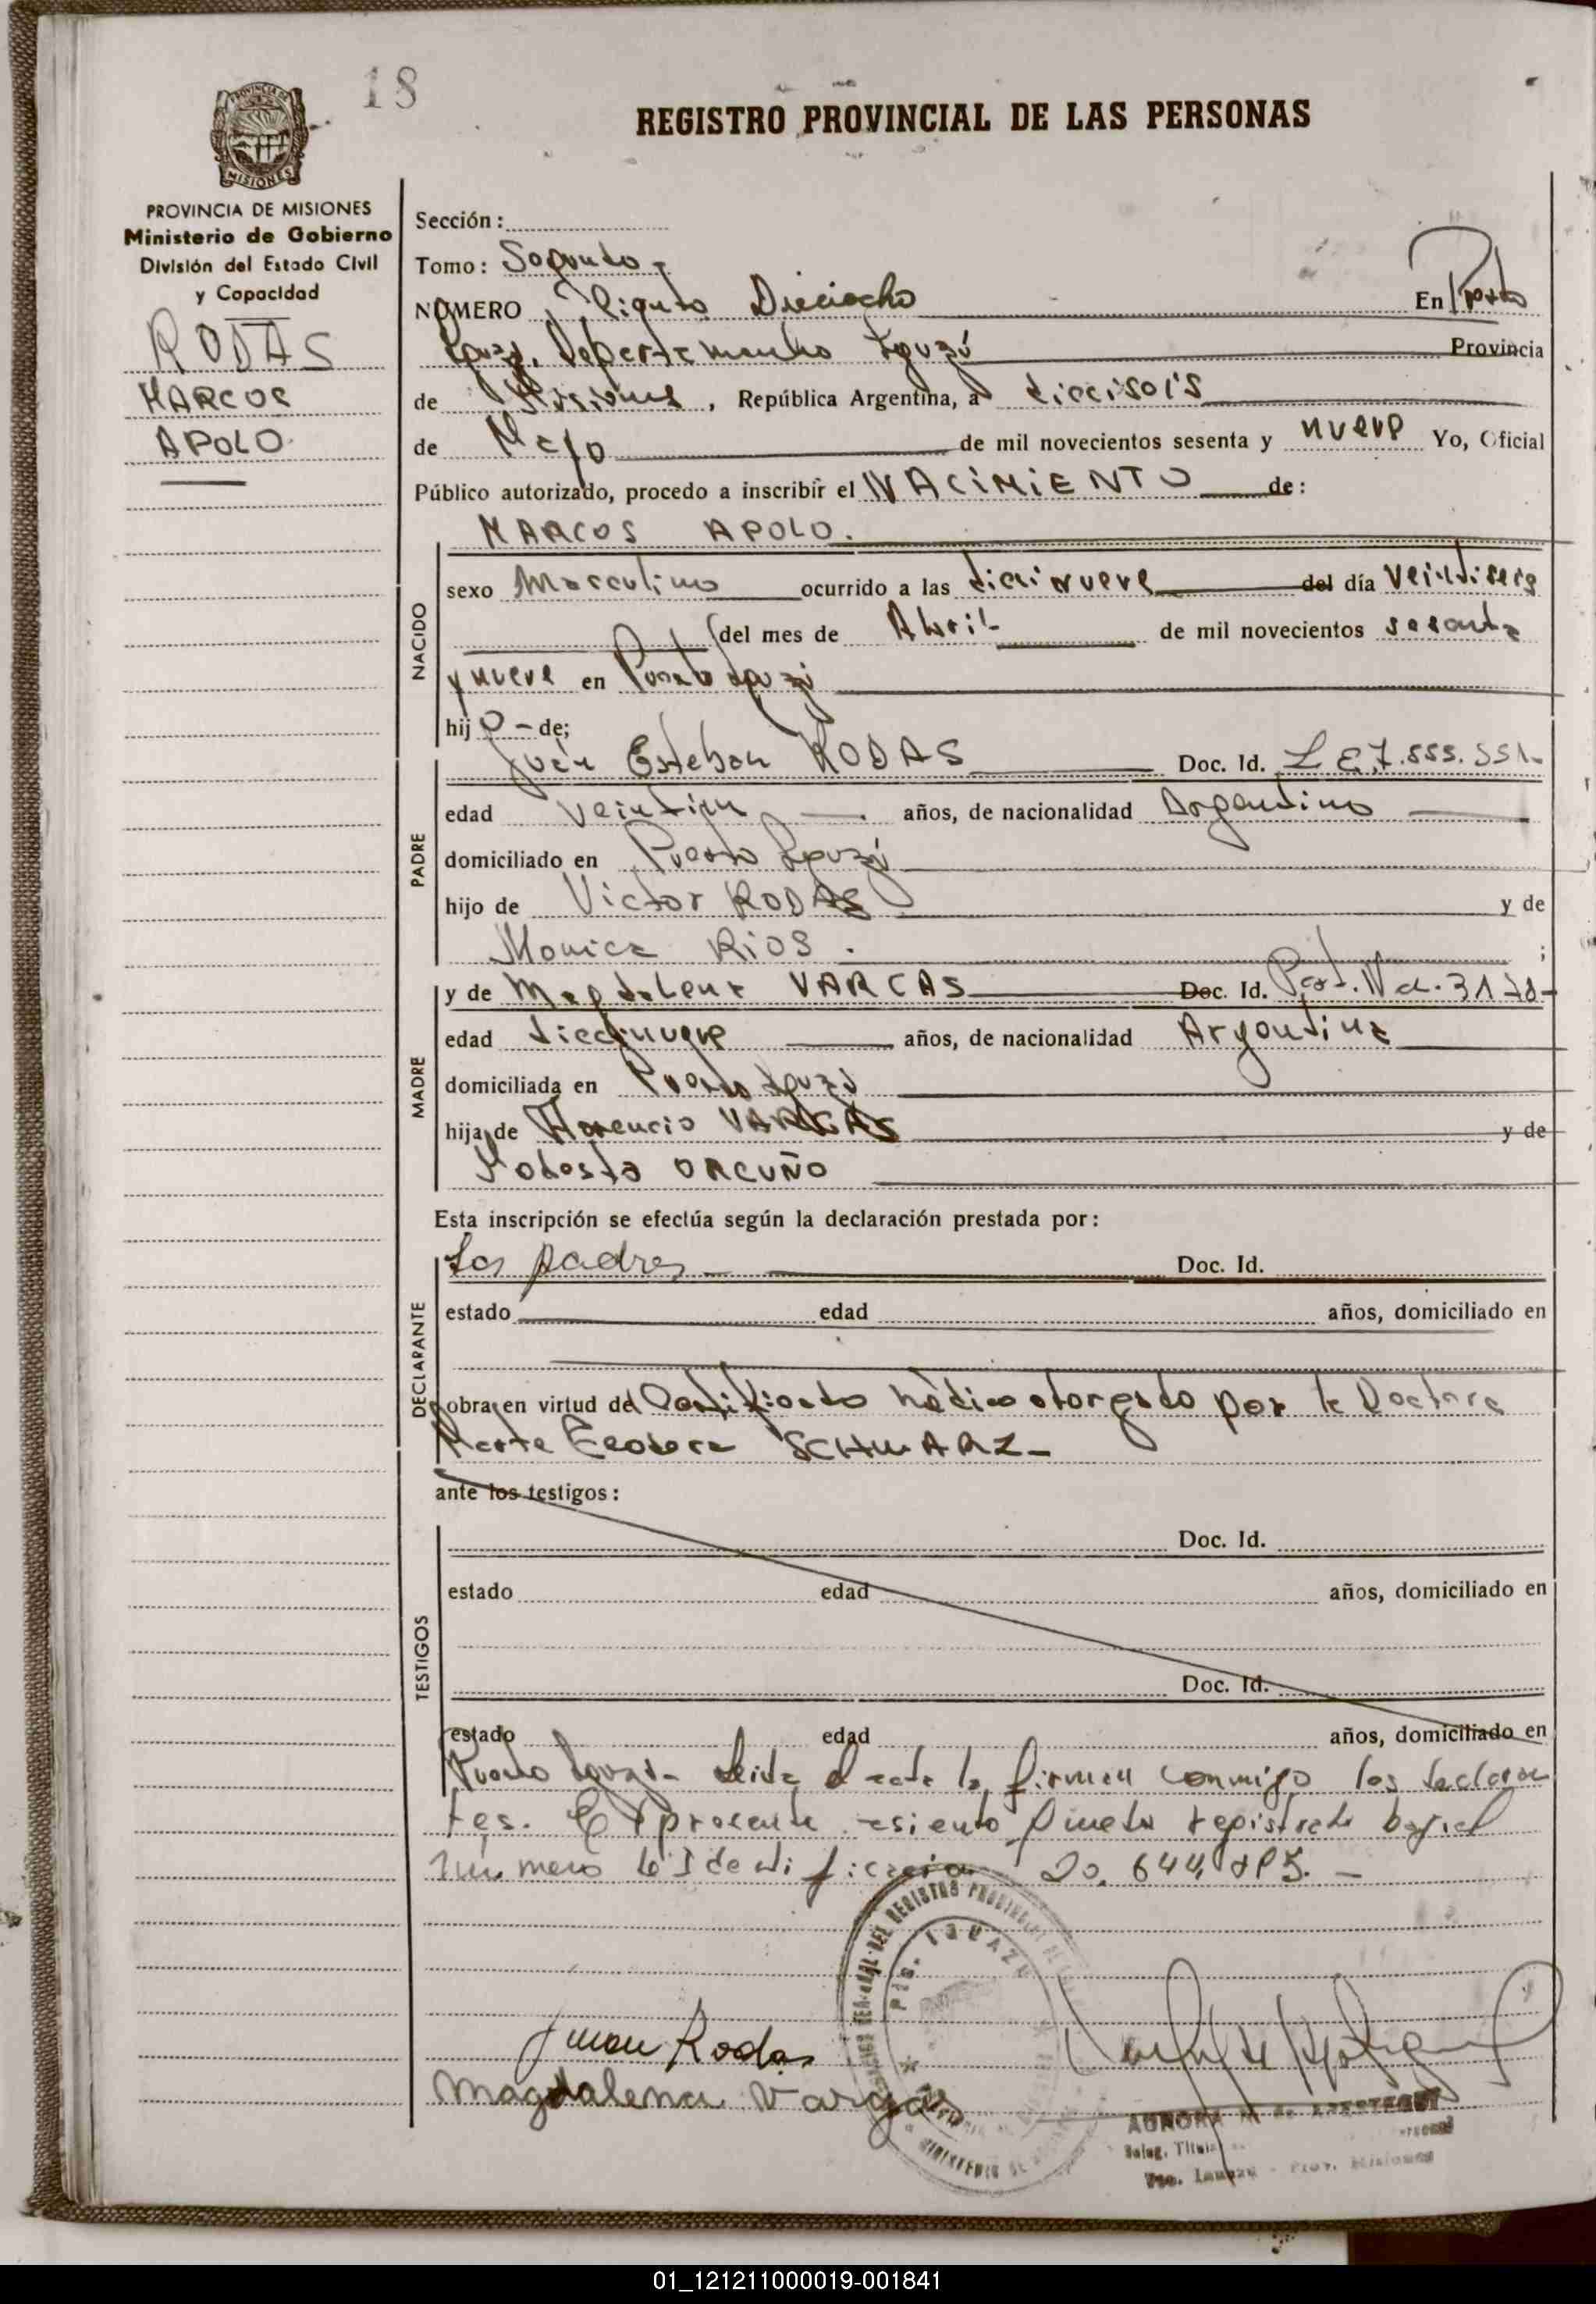 18
REGISTRO PROVINCIAL DE LAS PERSONAS
PROVINCIA DE
MISIONES
PROVINCIA DE MISIONES
Ministerio de Gobierno
División del Estado Civil
y Capacidad
RODAS
MARCOS
APOLO
Sección:
Tomo: Segundo
NÚMERO Dieciocho En Puerto
Iguazú, Departamento Iguazú Provincia
de Misiones, República Argentina, a dieciseis
de Mayo de mil novecientos sesenta y nueve Yo, Oficial
Público autorizado, procedo a inscribir el NACIMIENTO de:
MARCOS APOLO.
NACIDO
sexo Masculino ocurrido a las diecinueve del día Veintiseis
del mes de Abril de mil novecientos sesenta
y nueve en Puerto Iguazú
hijo - de;
PADRE
Juan Esteban RODAS Doc. Id. L.E.7.555.551-
edad años, de nacionalidad Argentino
domiciliado en Puerto Iguazú
hijo de Victor RODAS y de
Monica RIOS. ;
MADRE
y de Magdalena VARGAS Doc. Id.
edad diecinueve años, de nacionalidad Argentina
domiciliada en Puerto Iguazú
hija de Florencio VARGAS y de
Modesta ORCUÑO
Esta inscripción se efectúa según la declaración prestada por:
DECLARANTE
Los padres Doc. Id.
estado edad años, domiciliado en
obra en virtud del Certificado Médico otorgado por la Doctora
Marta Teodora SCHWARZ-
ante los testigos:
TESTIGOS
Doc. Id.
estado edad años, domiciliado en
Doc. Id.
estado edad años, domiciliado en
Puerto Iguazú- Leida el acta la firman conmigo los declaran
tes. El presente asiento queda registrado bajo el
número de Identificación 20.644
PTO. IGUAZU
Juan Rodas
Magdalena Vargas
AURORA
Deleg. Titular
Pto. Iguazu - Prov. Misiones
01_121211000019-001841